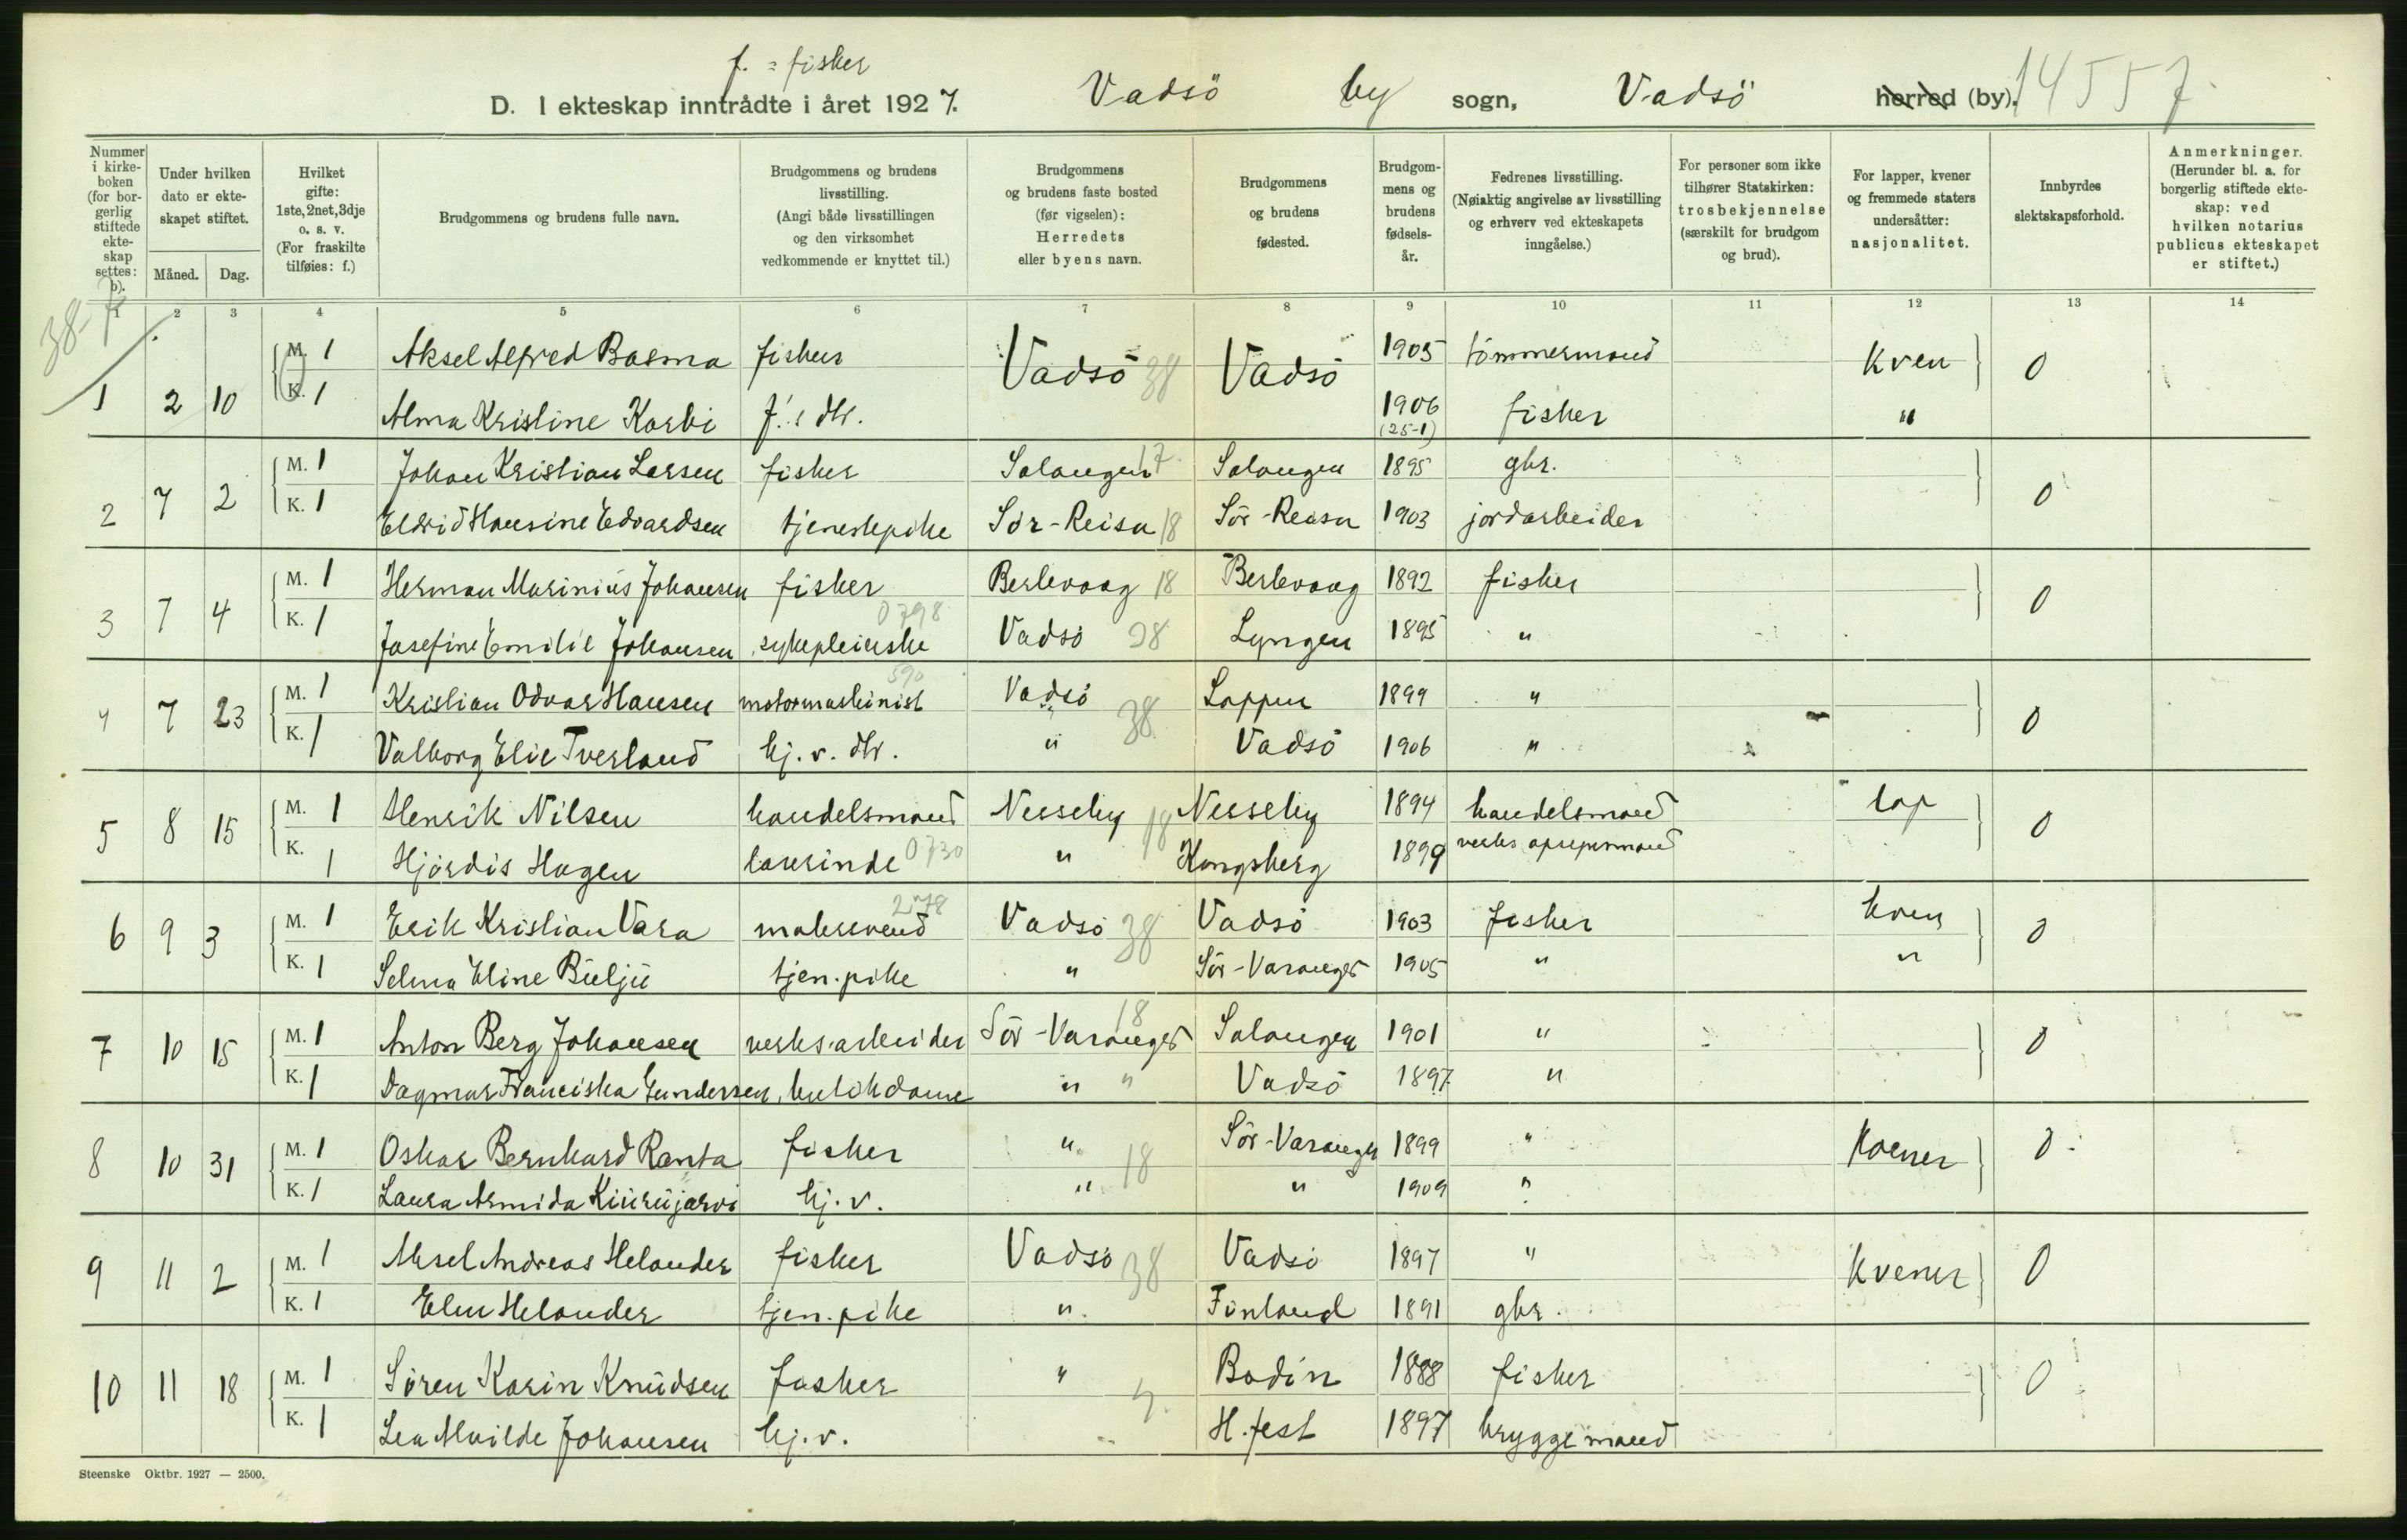 f. = fisker
D. I ekteskap inntrådte i året 1927. Vadsö by sogn, Vadsö herred (by). 14557.
Nummer i kirkeboken (for borgerlig stiftede ekteskap settes: b).
Under hvilken dato er ekteskapet stiftet.
Måned. Dag.
Hvilket gifte: 1ste, 2net, 3dje o. s. v. (For fraskilte tilføies: f.)
Brudgommens og brudens fulle navn.
Brudgommens og brudens livsstilling. (Angi både livsstillingen og den virksomhet vedkommende er knyttet til.)
Brudgommens og brudens faste bosted (før vigselen): Herredets eller byens navn.
Brudgommens og brudens fødested.
Brudgommens og brudens fødselsår.
Fedrenes livsstilling. (Nøiaktig angivelse av livsstilling og erhverv ved ekteskapets inngåelse.)
For personer som ikke tilhører Statskirken: trosbekjennelse (særskilt for brudgom og brud).
For lapper, kvener og fremmede staters undersåtter: nasjonalitet.
Innbyrdes slektskapsforhold.
Anmerkninger. (Herunder bl. a. for borgerlig stiftede ekteskap: ved hvilken notarius publicus ekteskapet er stiftet.)
1 2 3 4 5 6 7 8 9 10 11 12 13 14
38-
M. 1 Aksel Alfred Basma fisker Vadsö 38 Vadsö 1905 tömmermand kven 0
1 2 10 K. 1 Alma Kristine Karbi f.'s dtr. 1906 (25-1) fisker "
M. 1 Johan Kristian Larsen fisker Salangen 17 Salangen 1895 gbr. 0
2 7 2 K. 1 Eldrid Hansine Edvardsen tjenestepike Sör-Reisa 18 Sör-Reisa 1903 jordarbeider
M. 1 Herman Marinius Johansen fisker Berlevaag 18 Berlevaag 1892 fisker 0
3 7 4 K. 1 Josefine Emilie Johansen sykepleierske 0798 Vadsö 38 Lyngen 1895 "
M. 1 Kristian Odvar Hansen motormaskinist 590 Vadsö 38 Loppen 1899 " 0
4 7 23 K. 1 Valborg Elie Tverland hj. v. dtr. " Vadsö 1906 "
M. 1 Henrik Nilsen handelsmand Nesseby 18 Nesseby 1894 handelsmand lap 0
5 8 15 K. 1 Hjördis Hagen lærerinde 0730 " Kongsberg 1899 verks opsynsmand
M. 1 Erik Kristian Vara malersvend 2778 Vadsö 38 Vadsö 1903 fisker kven 0
6 9 3 K. 1 Selma Eline Bieljü tjen.pike " Sör-Varanger 1905 " "
M. 1 Anton Berg Johansen verks.arbeider Sör-Varanger 18 Salangen 1901 " 0
7 10 15 K. 1 Dagmar Franciska Gundersen butikdame " " Vadsö 1897 "
M. 1 Oskar Bernhard Ranta fisker " 18 Sör-Varanger 1899 " kvener 0
8 10 31 K. 1 Laura Armida Kiürüjärvi hj. v. " " 1909 "
M. 1 Aksel Andreas Helander fisker Vadsö 38 Vadsö 1897 " kvener 0
9 11 2 K. 1 Elen Helander tjen.pike " Finland 1891 gbr.
M. 1 Sören Karin Knüdsen fisker " Bodin 1888 fisker 0
10 11 18 K. 1 Lea Alvilde Johansen hj. v. " H.fest 1897 bryggemand
Steenske Oktbr. 1927 — 2500.